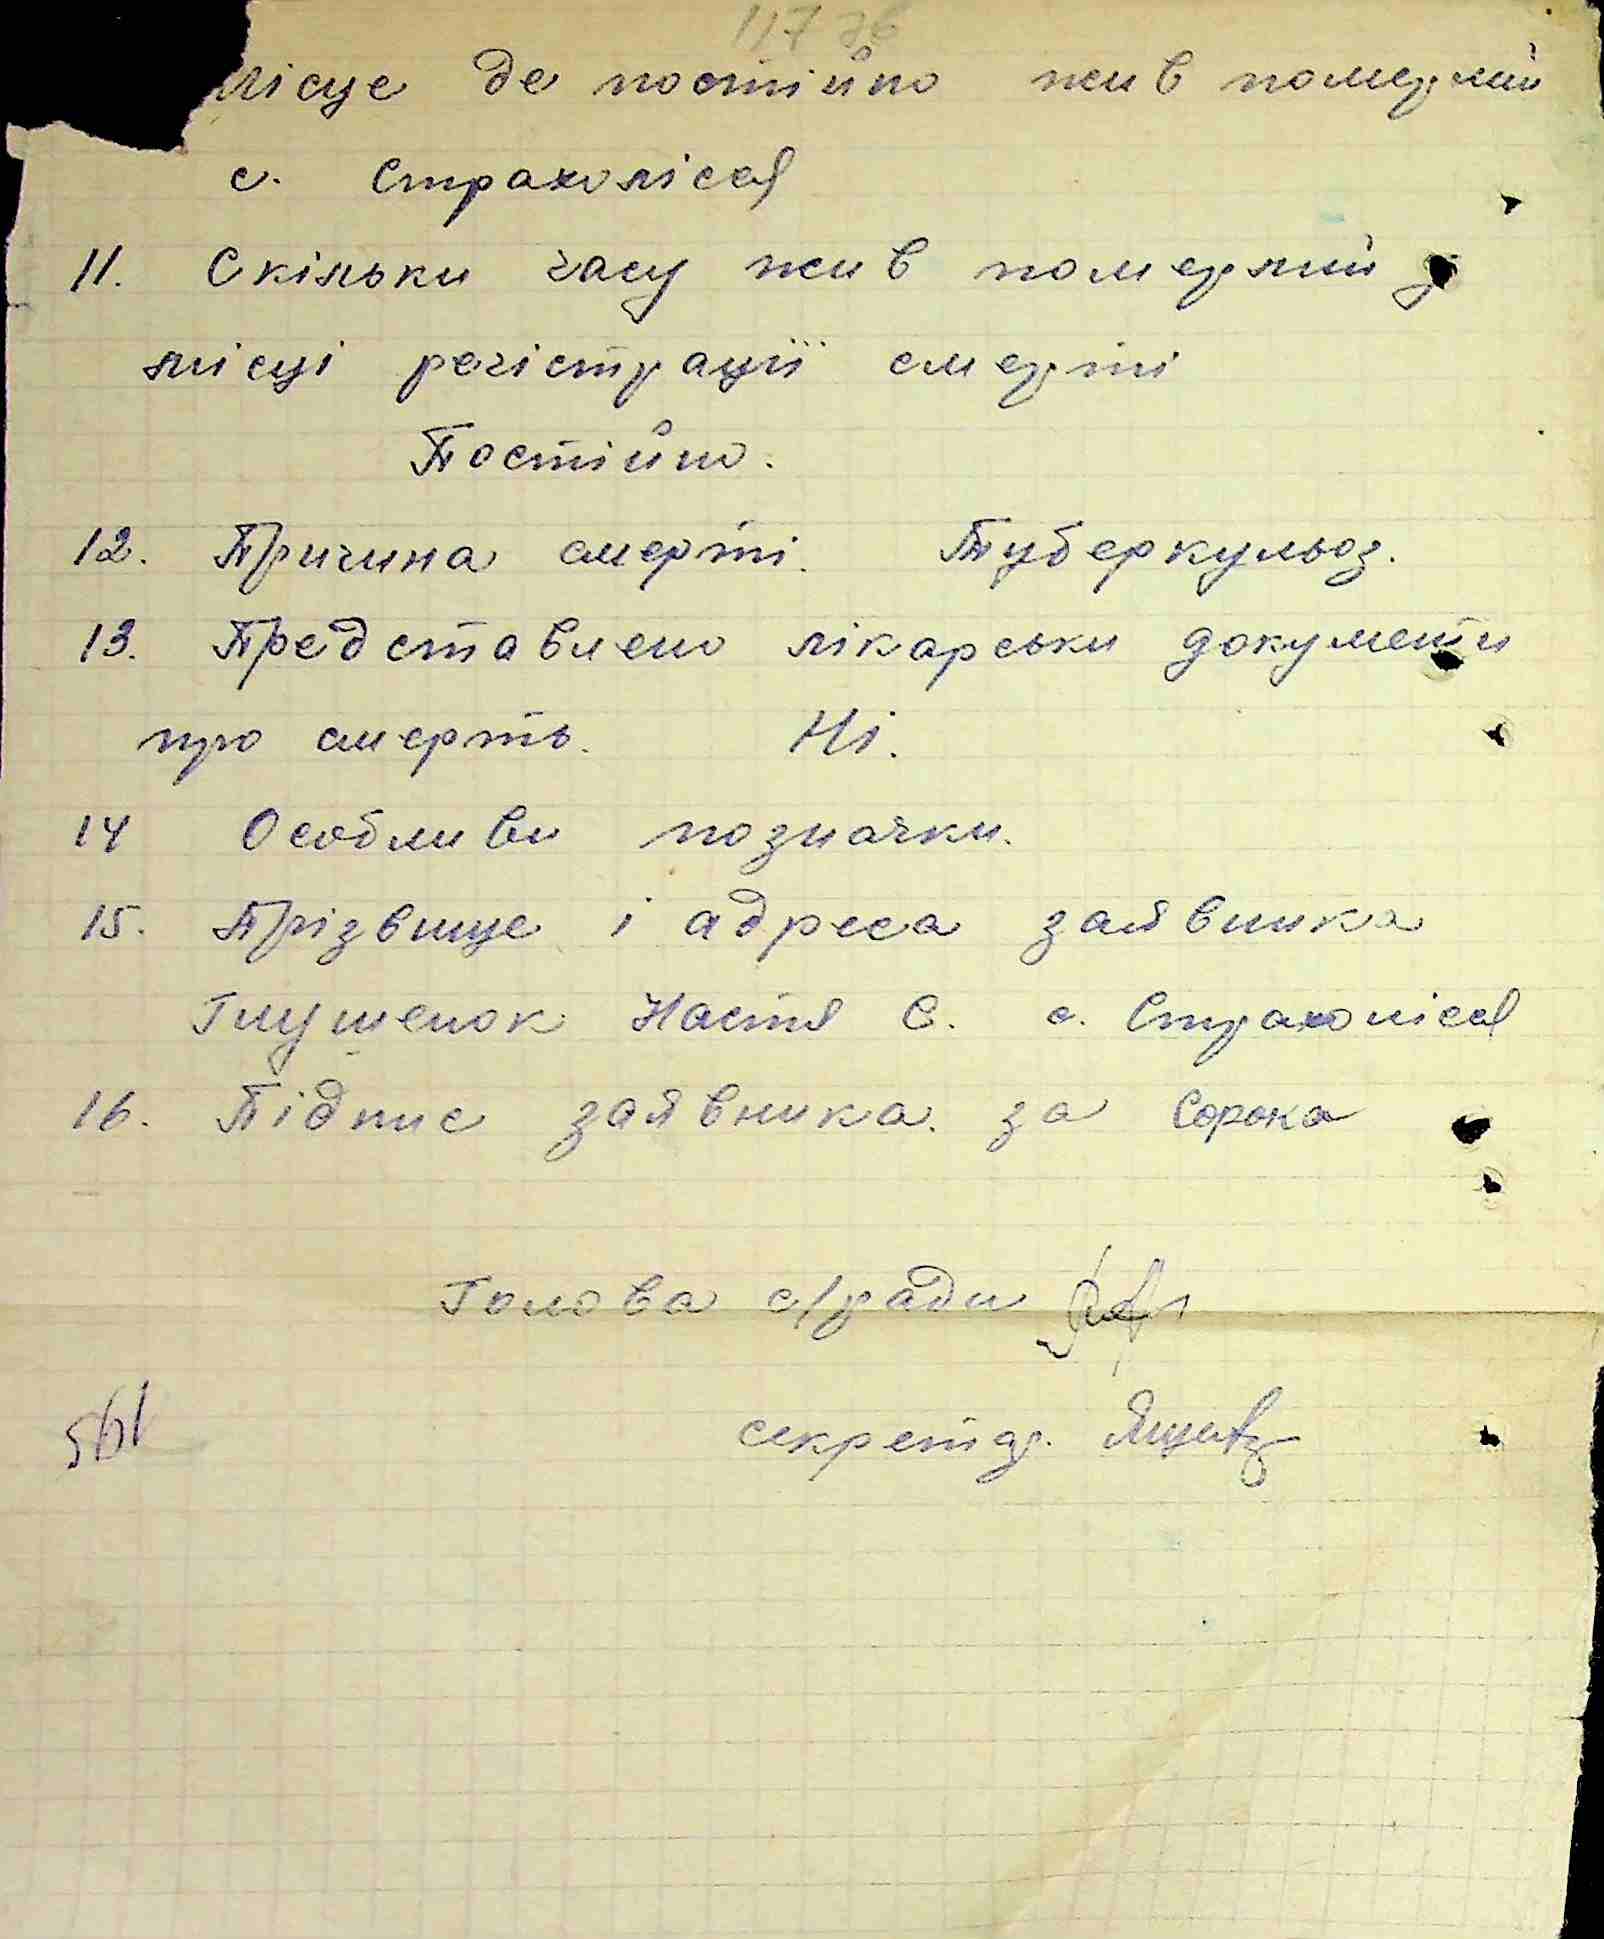 117 зб
Місце де постійно жив померлий
с. Страхолісся
11. Скільки часу жив померлий у
місці реєістрації смерті
Постійно.
12. Причина смерті. Туберкульоз.
13. Представлено лікарськи документи
про смерть. Ні.
14 Особливи позначки.
15. Прізвище і адреса заявника
Глушенок Настя С. с. Страхолісся
16. Підпис заявника. за Сорока
Голова с/ради
секретар.